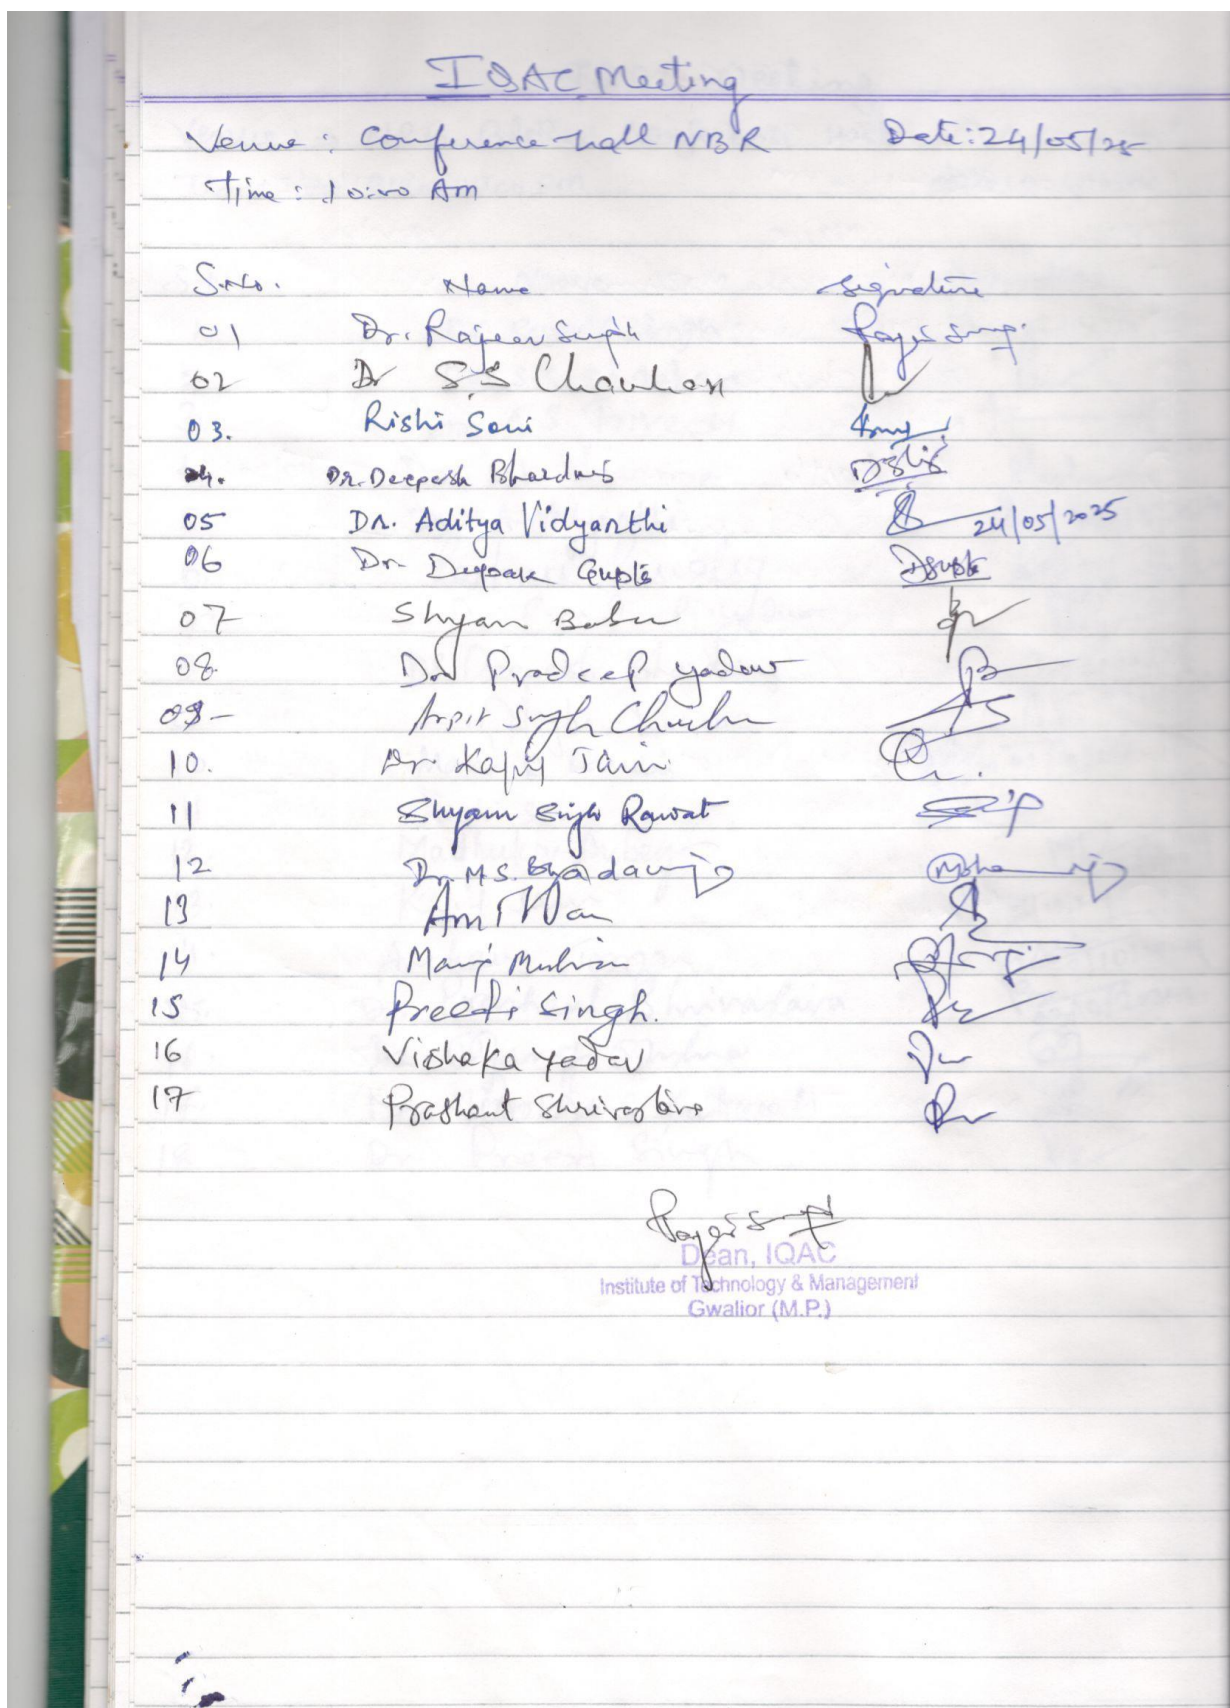 IQAC Meeting
Venue : Conference hall NBR Date: 24/05/25
Time : 10:00 AM
S.No. Name Signature
01 Dr. Rajeev Singh
02 Dr S.S Chauhan
03. Rishi Soni
04. Dr. Deepesh Bhardwaj
05 Dr. Aditya Vidyarthi 24/05/2025
06 Dr. Deepak Gupta DGupta
07 Shyam Babu
08. Dr Pradeep Yadav
09- Arpit Singh
10. Dr. Jain
11 Shyam Singh Rawat
12 Dr. M.S.
13
14
15 Preeti Singh.
16 Vishaka Yadav
17 Prashant Shrivastava
Dean, IQAC
Institute of Technology & Management
Gwalior (M.P.)